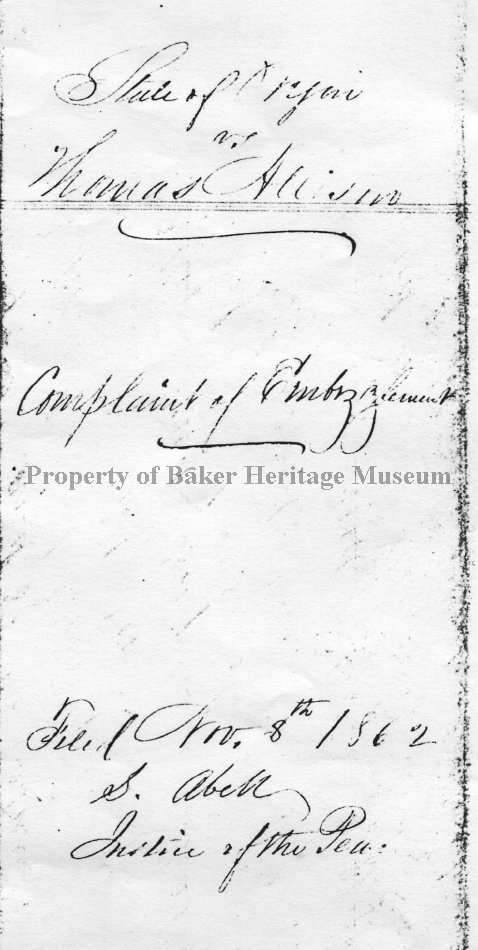 State of Oregon
vs
Thomas Allison
Complaint of Embezzlement
Property of Baker Heritage Museum
Filed Nov. 8th 1862
S. Abell
Justice of the Pea: